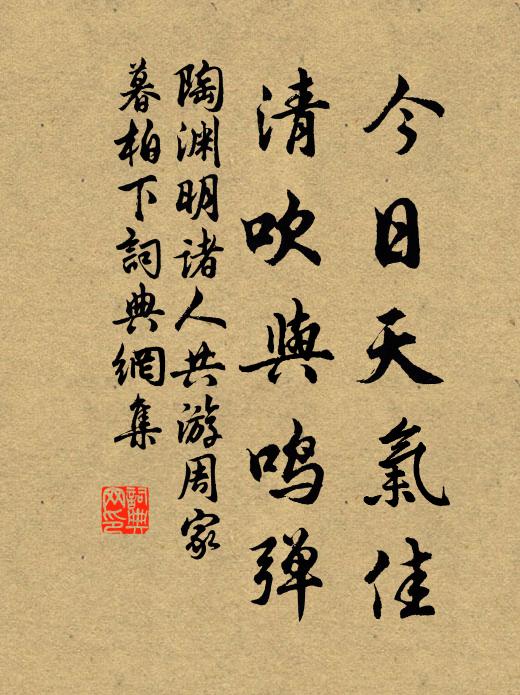 今日天氣佳
清吹與鳴彈
陶淵明諸人共游周家
暮柏下詞典網集
詞典
网印